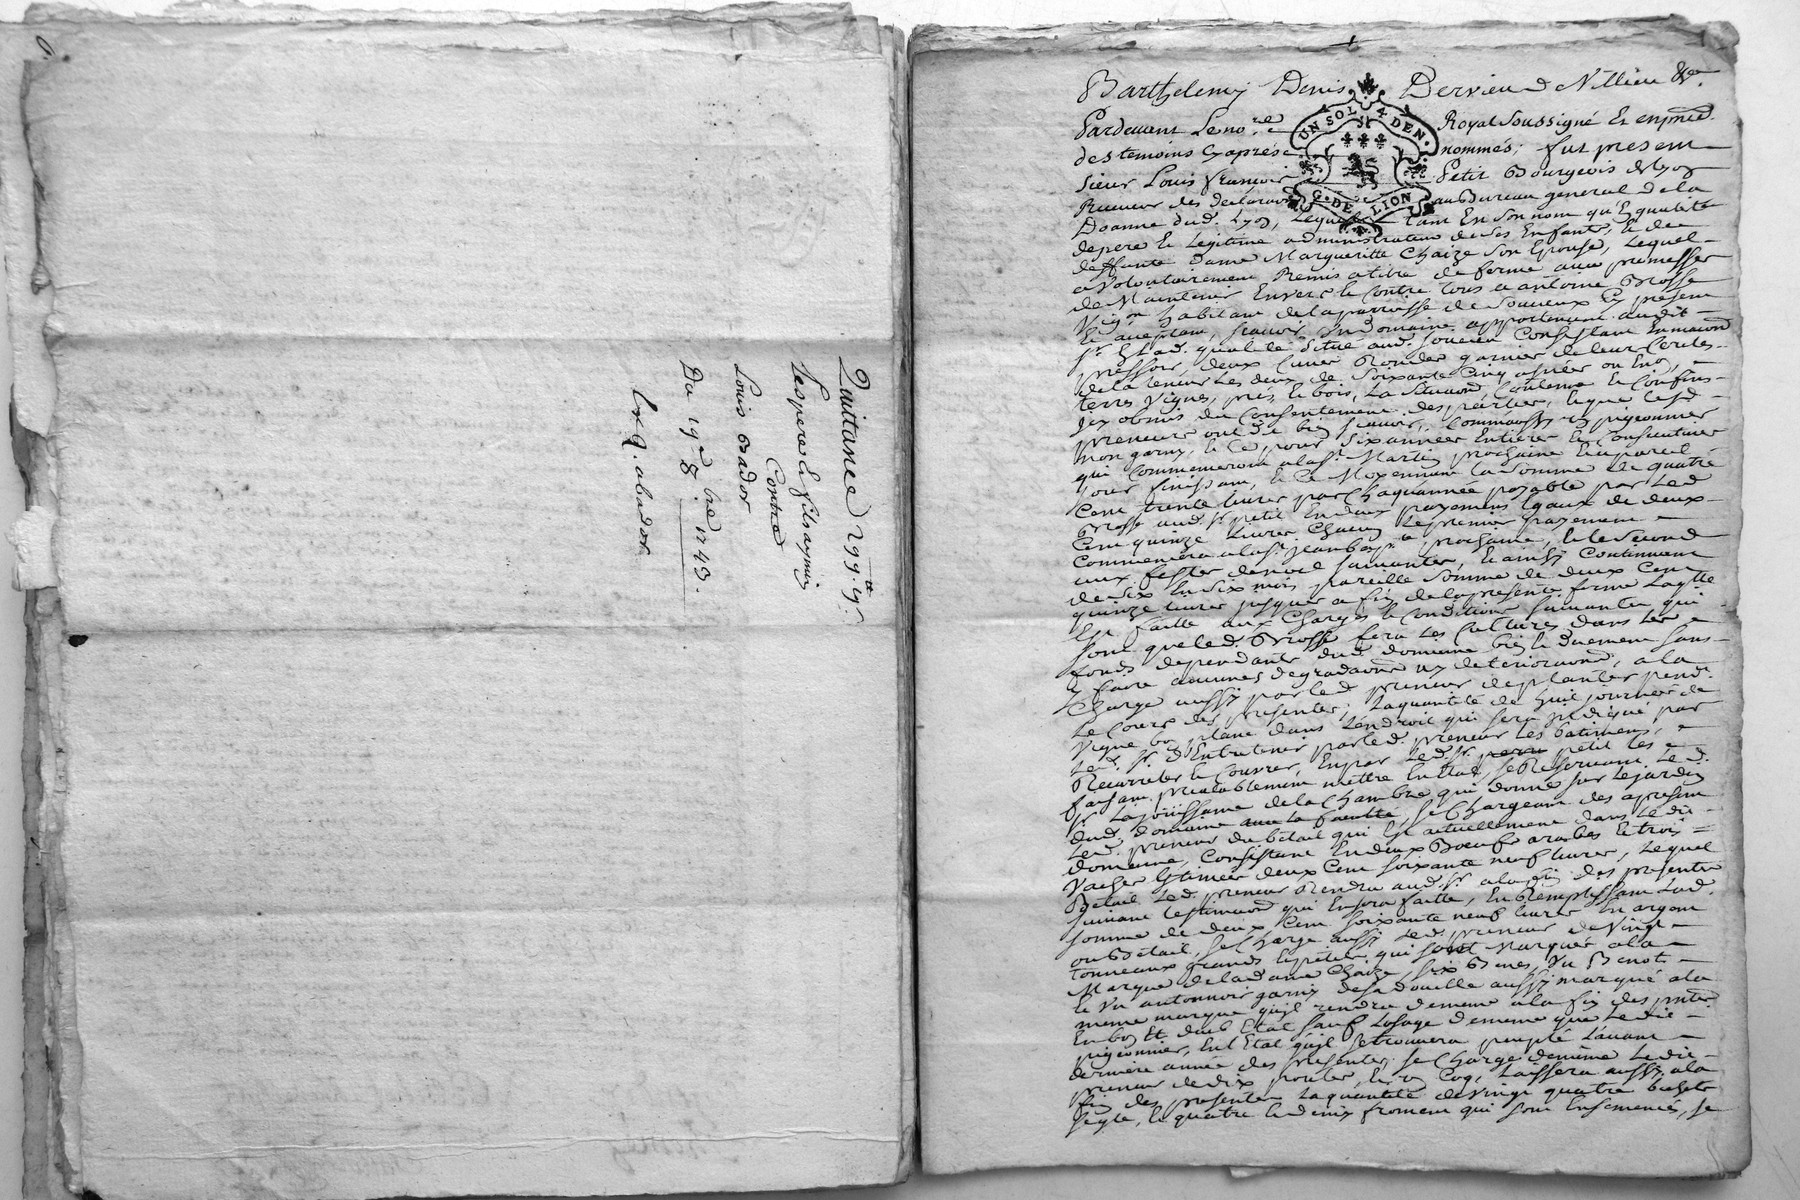 Quittance 299.tt 15.s
Lespere & fils aymin
Contre
Louis Bador
Du 19.e 8.bre 1743.
Exq. abador
Barthelemy Denis Dervieu de Villieu &a
UN SOL 4 DEN.
G. DE LION
Pardevant Le no.re Royal Soussigné Et en pnce.
des temoins Cy apres nommés; fut present
Sieur Louis francois Petit Bourgeois de Lyon
Receveur des declaraons au Bureau general de la
Doanne dud. Lyon, Lequel tant En Son nom qu'En qualité
de pere & Legitime administrateur de Ses Enfants, & de
deffunte dame Margueritte Chaize Son Epouse, Lequel
a Volontairement Remis a titre de ferme avec promesse
de Maintenir Envers & Contre tous a antoine Brosse
Vig.on habitant de la parroisse de Soucieux Cy present
Et aceptant, scavoir Un Domaine appartenant audit
S.r Esd. qualité Situé aud. Soucieu Consistant En maison
pressoir, deux Cuves Rondes garnies de Leur Cercles
de la teneur Les deux de Soixante Cinq asnées ou Env.on,
terres Vignes, prés, & bois, La Situaon Contenue & Confins
Icy obmis du Consentement des parties, & que Lesd.
preneurs ont dit bien scavoir, Comm'aussy un pigeonnier
non garny, & Ce pour Six années Entieres & Consecutives
qui Commenceront a la St. Martin prochaine & a pareil
jour finissant, & Ce Moyennant la Somme de quatre
Cent trente Livres par Chaqu'année payable par Led.
Brosse aud. Sr. petit En deux payements Egaux de deux
Cent quinze Livres Chacun Le premier payement
Commencera a la St. jean bap.te prochaine, & le Second
aux festes de noel Suivantes, & ainsy Continuant
de Six En Six mois pareille Somme de deux Cent
quinze Livres jusques a fin de la presente ferme Laqlle
Est faitte aux Charges & Conditions Suivantes, qui
Sont que led. Brosse fera Les Cultures dans Les
fonds dependants dud. domaine bien & duement Sans
y faire aucunes degradaons ny deterioraons, a la
Charge aussy par led. preneur de planter pend.t
Le Cours des presentes, La quantité de huit journées de
Vigne bon plant dans L'endroit qui Sera Indiqué par
Led. Sr. d'Entretenir par led. preneur Les batimens,
Recurreter & Couvrer, En par Led. Sr. petit Les
faisant prealablement mettre En Etat, Se Reservant Led.
Sr. La jouissance de la Chambre qui donne Sur Le jardin
dud. domaine, Se Chargeant des a present
Led. preneur du bétail qui Est actuellement dans Le dit
domaine, Consistant En deux Bœufs arables & trois
Vaches Estimées deux Cent Soixante neuf Livres, Lequel
Betail Led. preneur Rendra aud. Sr. a la fin des presentes
Suivant L'estimaon qui En Sera faitte, En Remplissant Lad.
Somme de deux Cent Soixante neuf Livres En argent
ou Bétail, Se Charge aussy Led. preneur de Vingt
tonneaux grands & petits qui Sont Marqués a la
Marque de la dame Chaize, Six Benes, Un Benot
& Un antonnoir garny de Sa douille aussy marqué a la
meme marque qu'il rendra de meme a la fin des pntes
En bon Et dub Etat Sauf L'usage de meme que Le dit
pigeonnier, En L'Etat qu'il Se trouvera peuplé L'avant
derniere année des presentes, Se Charge de meme Le dit
preneur de dix poules, & un Coq, Laissera aussy a la
fin des presentes La quantité de Vingt quatre bichets
Segle, & quatre & demis froment qui Sont Ensemencés, Se